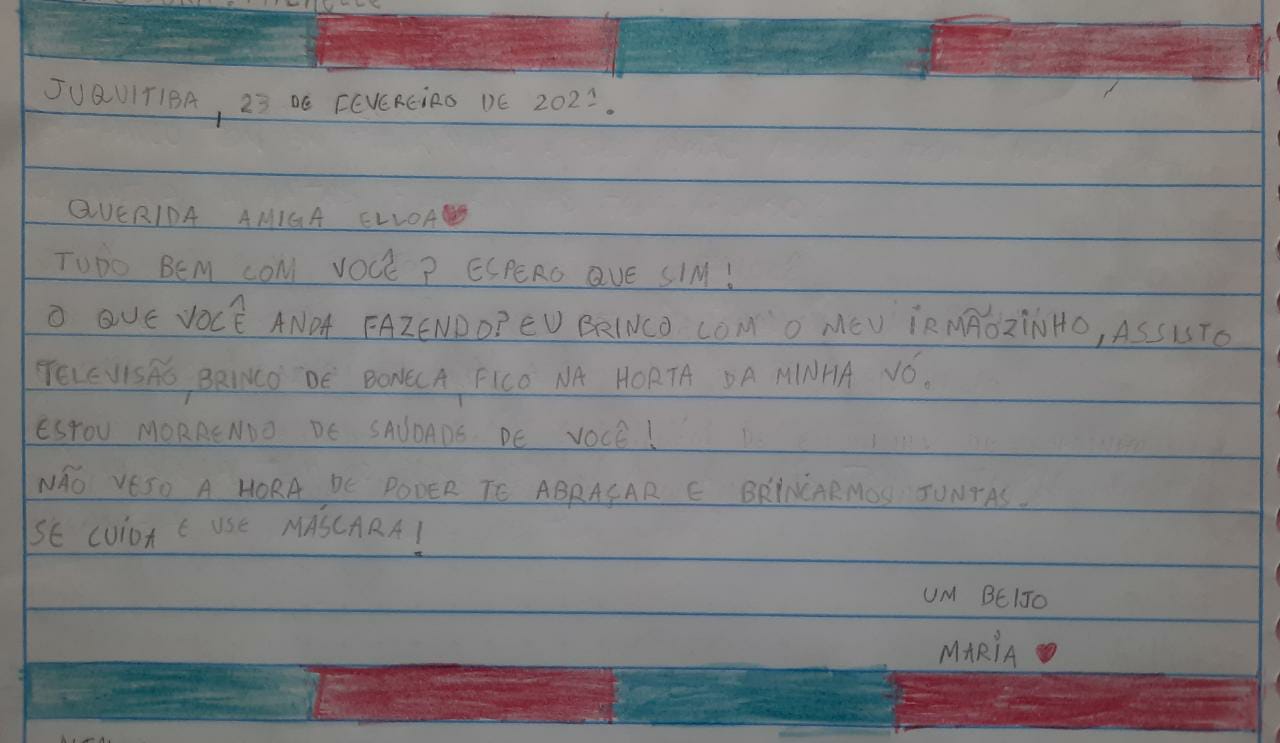 JUQUITIBA, 23 DE FEVEREIRO DE 2021.
QUERIDA AMIGA ELLOA
TUDO BEM COM VOCÊ? ESPERO QUE SIM!
O QUE VOCÊ ANDA FAZENDO? EU BRINCO COM O MEU IRMÃOZINHO, ASSISTO
TELEVISÃO, BRINCO DE BONECA, FICO NA HORTA DA MINHA VÓ.
ESTOU MORRENDO DE SAUDADE DE VOCÊ!
NÃO VEJO A HORA DE PODER TE ABRAÇAR E BRINCARMOS JUNTAS.
SE CUIDA E USE MÁSCARA!
UM BEIJO
MARIA